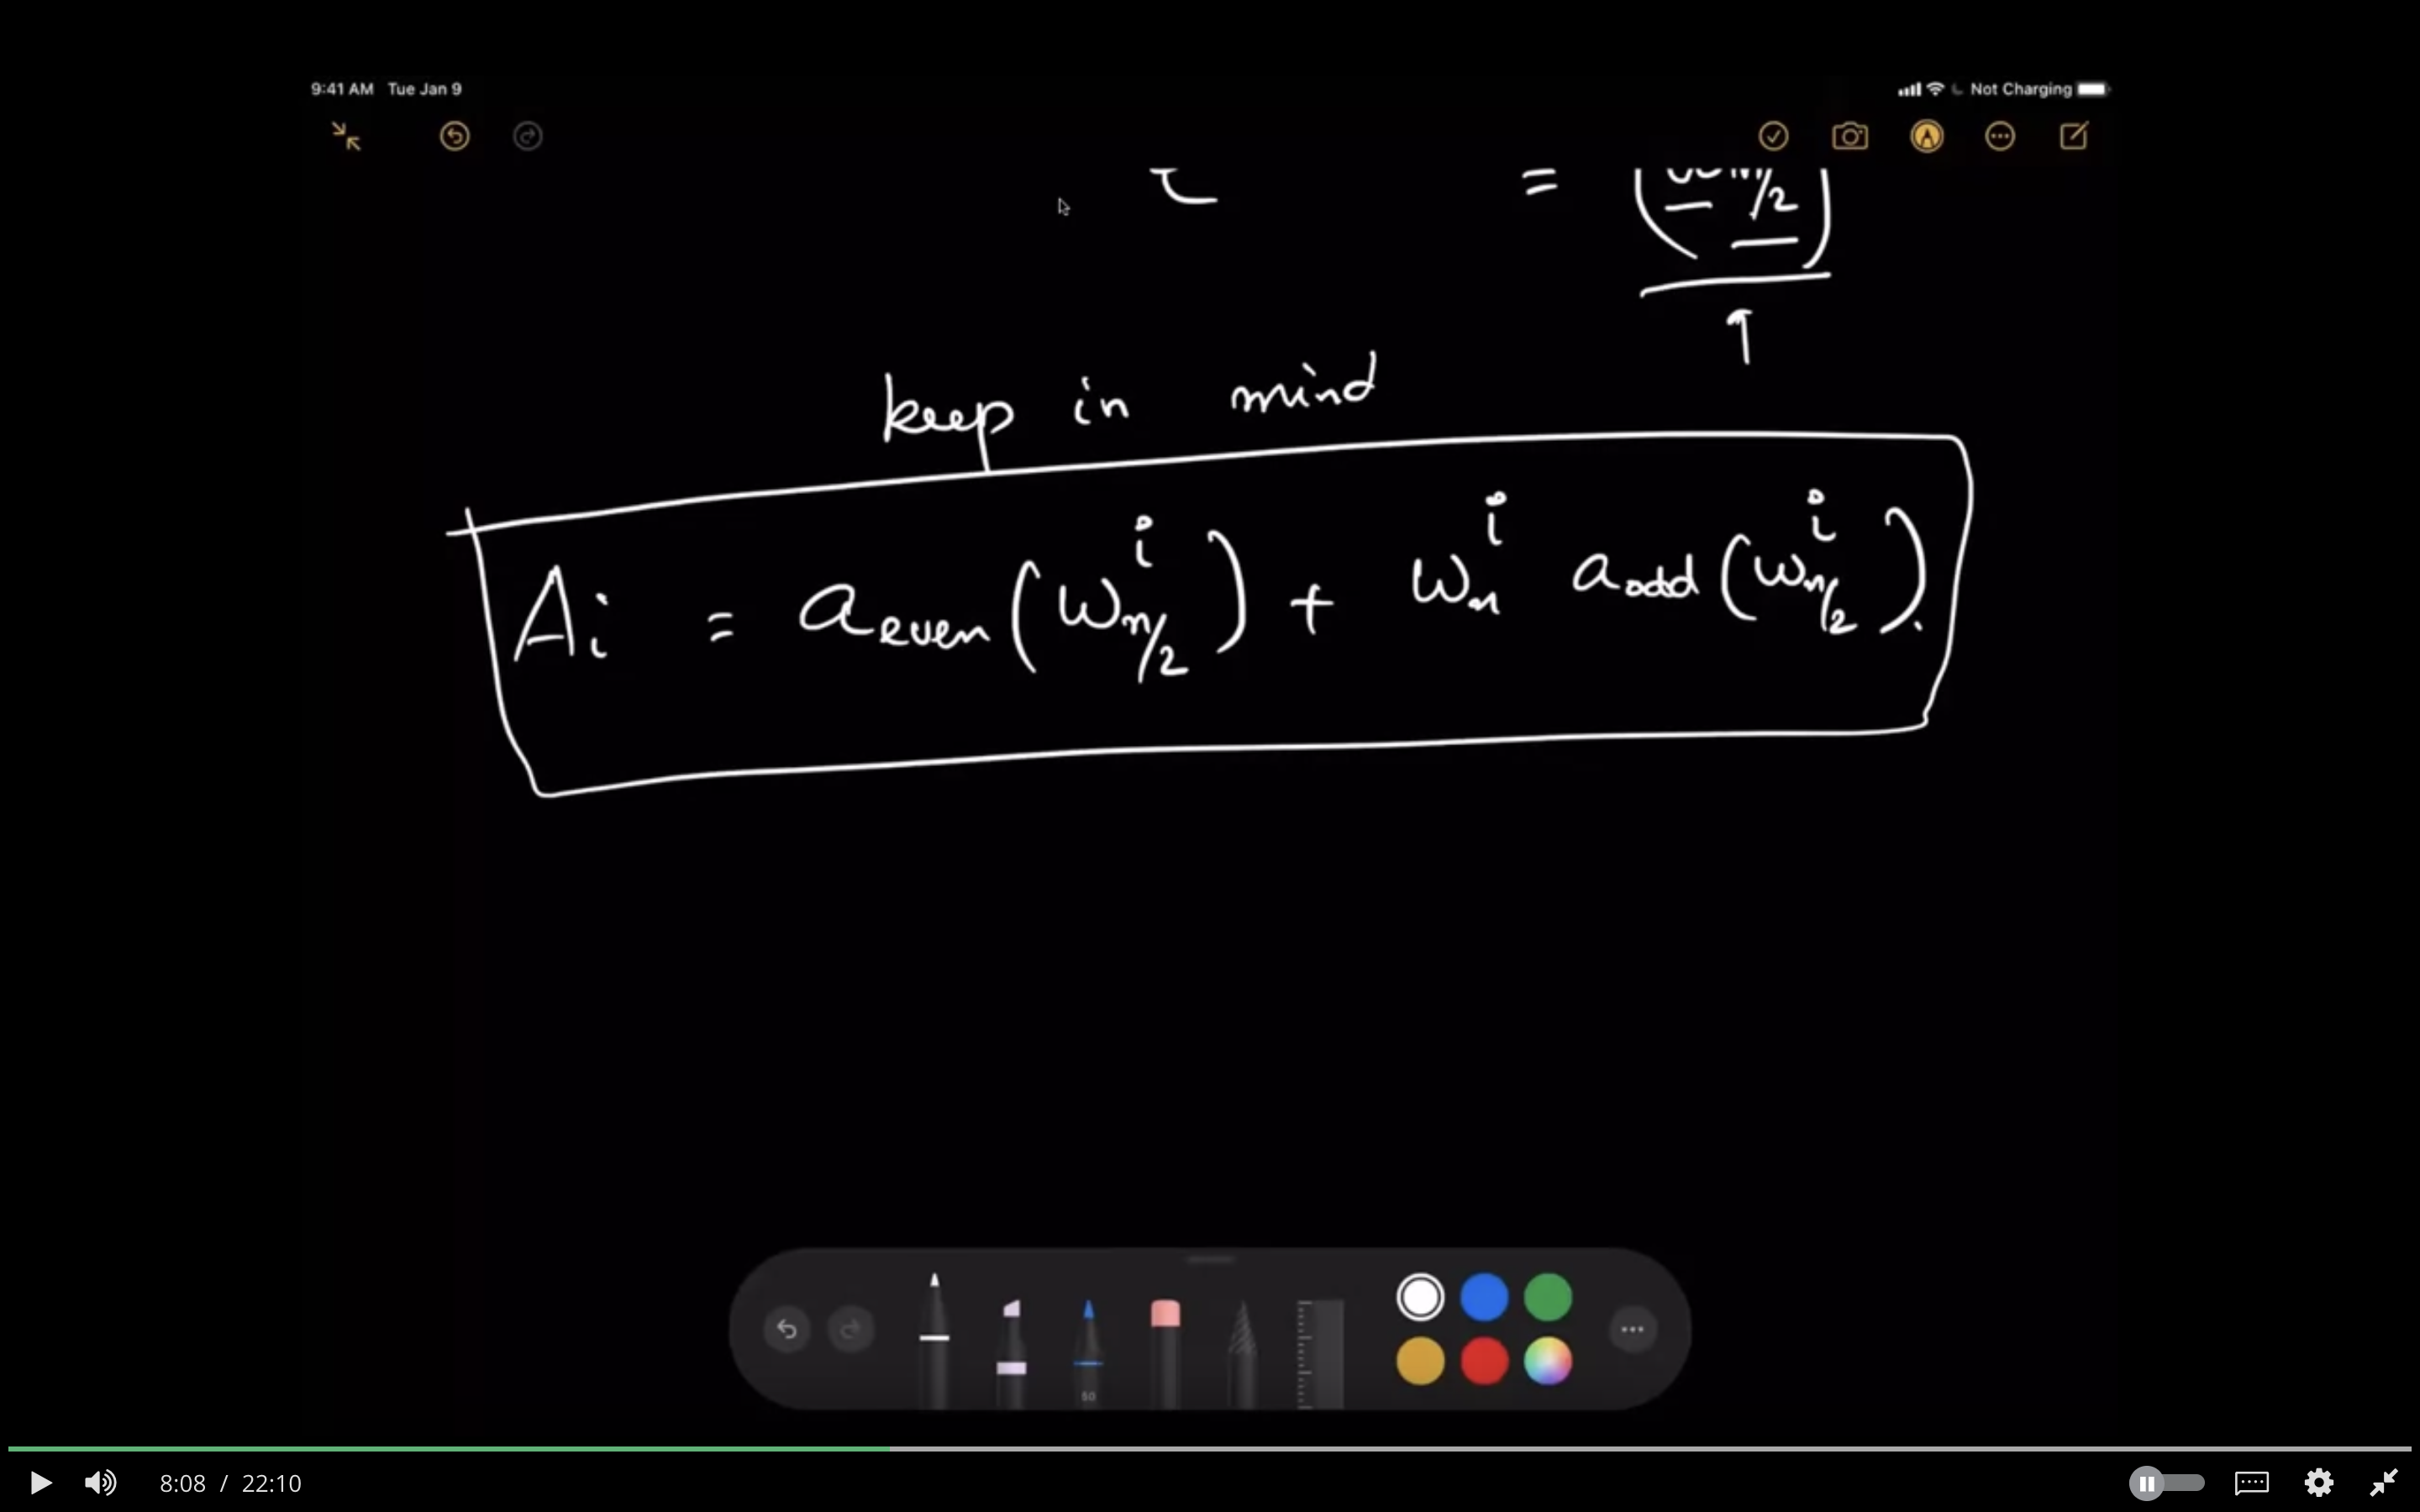 9:41 AM Tue Jan 9 Not Charging
= /2
keep in mind
Aᵢ = a_even(ω_{n/2}^i) + ω_n^i a_odd(ω_{n/2}^i).
50
8:08 / 22:10